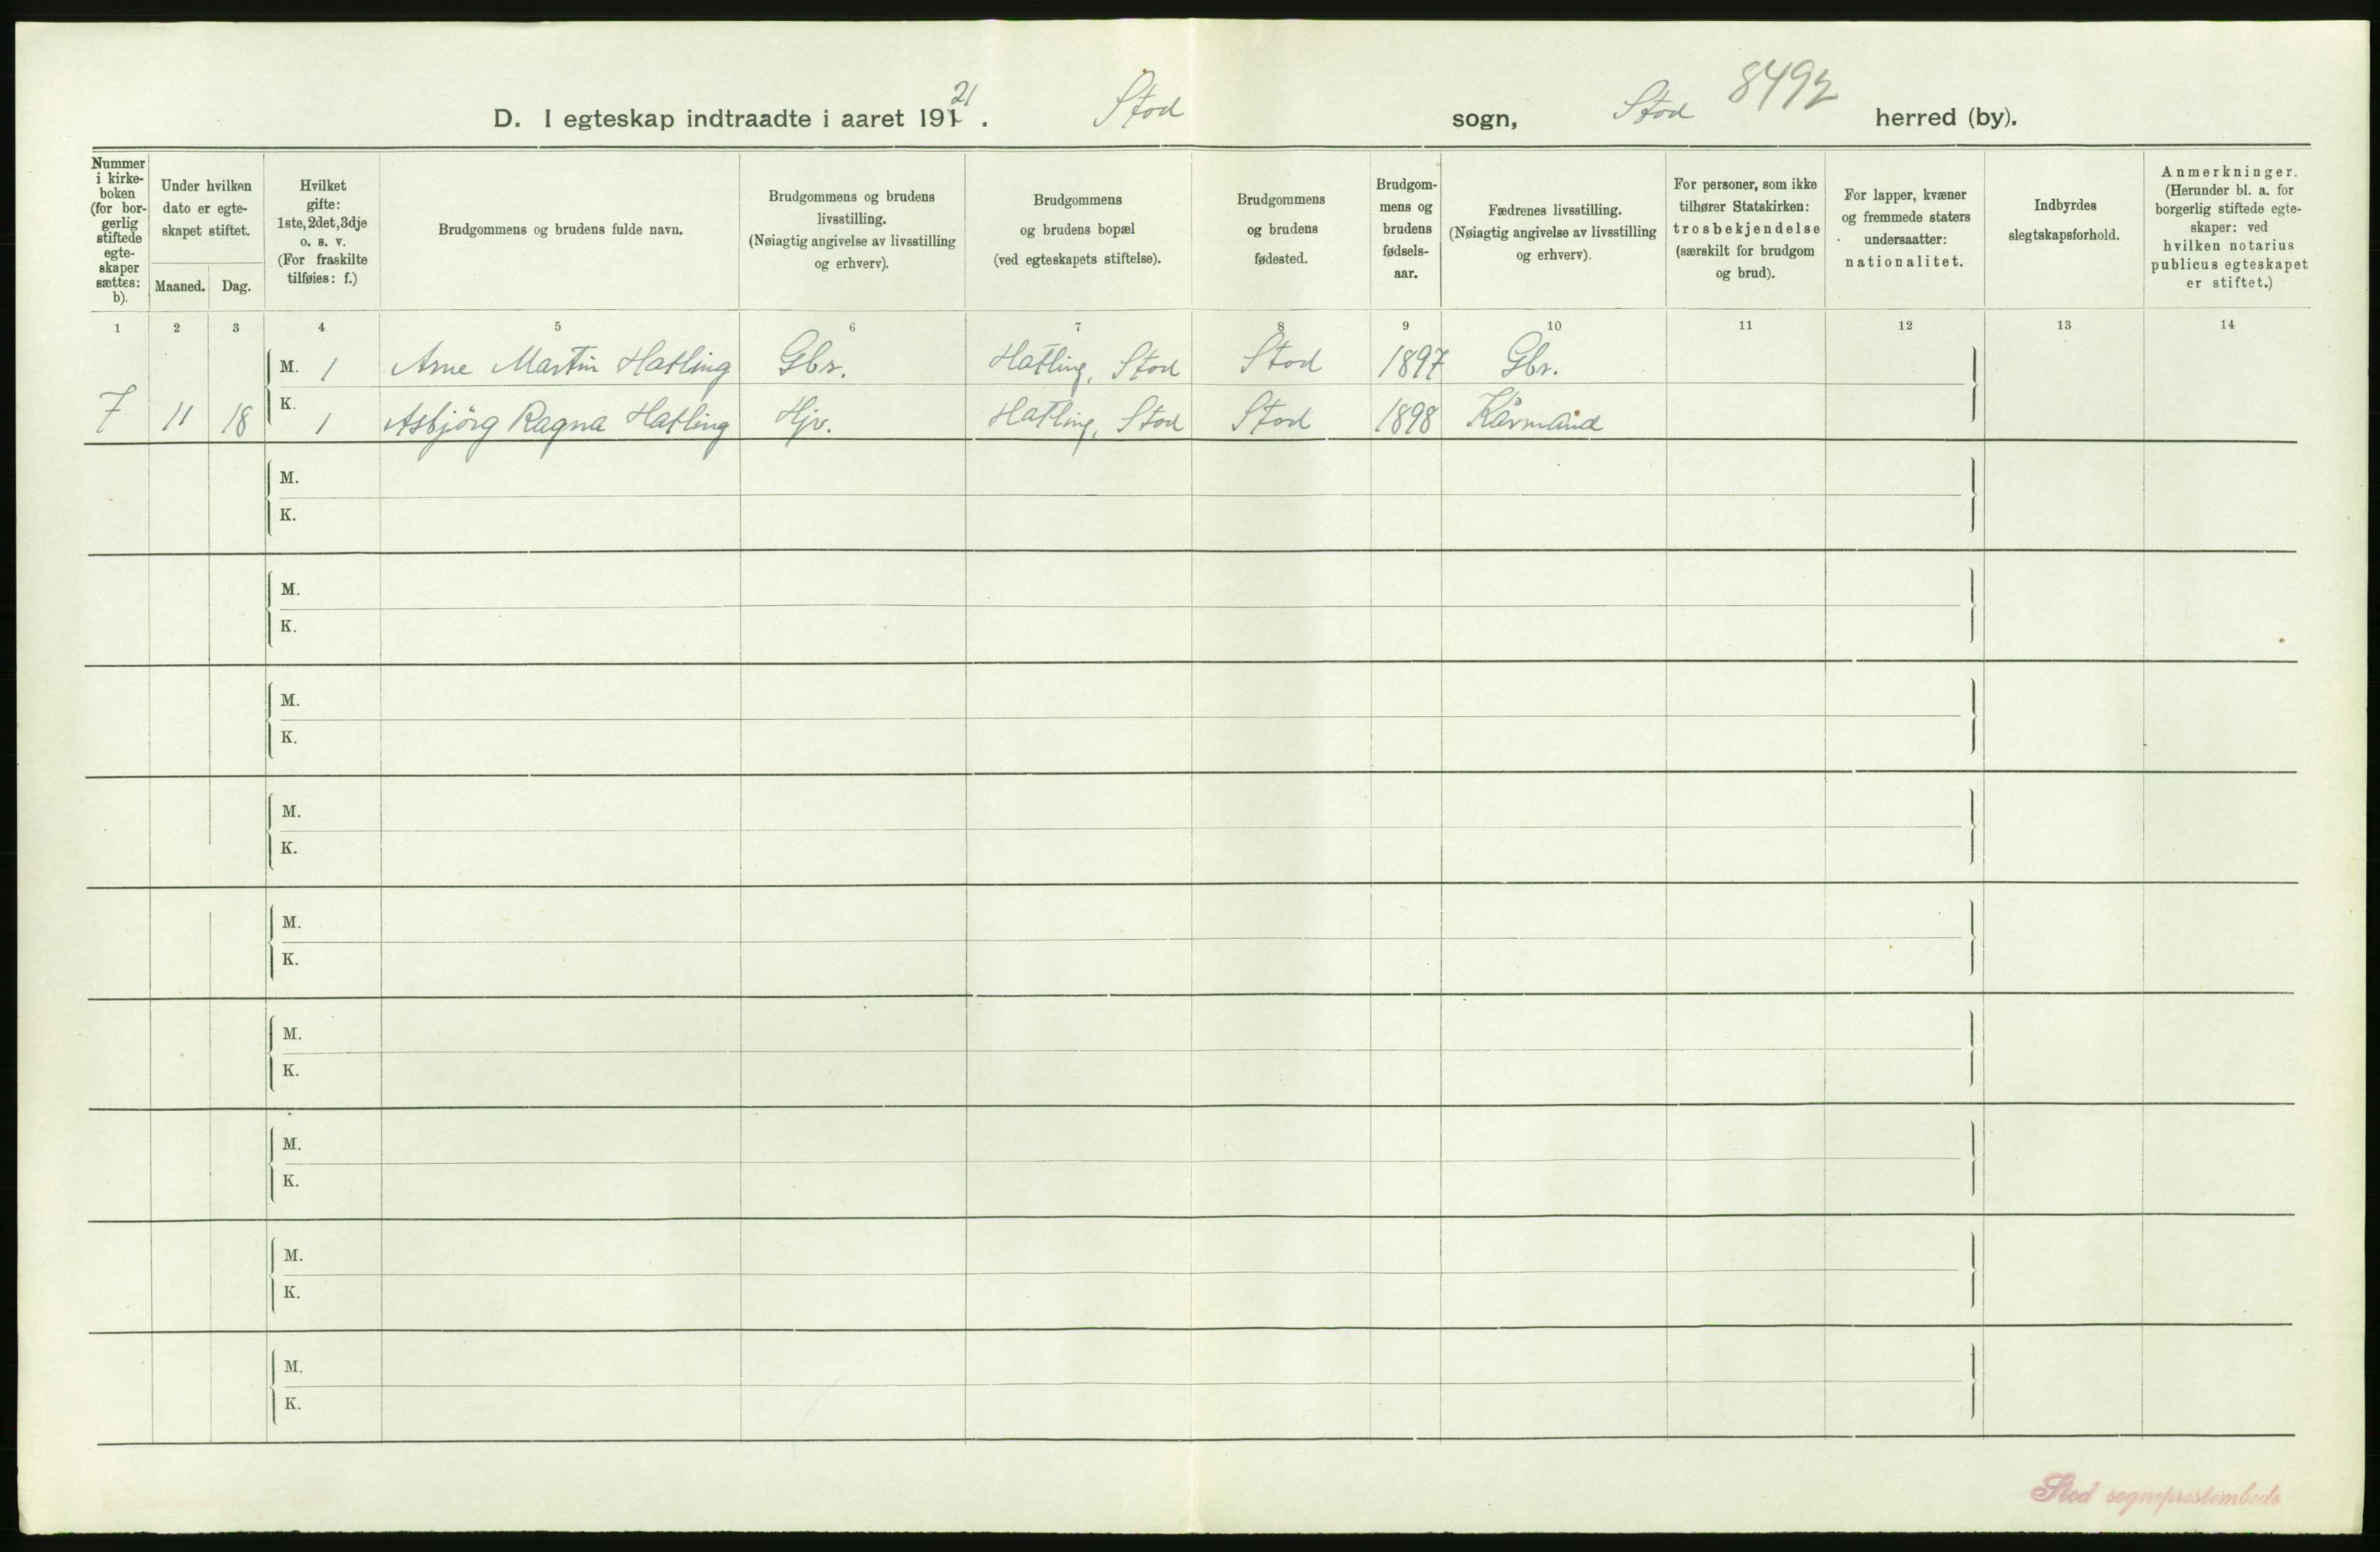 D. I egteskap indtraadte i aaret 191 21. Stod sogn, Stod 8492 herred (by).
Nummer i kirke-boken (for bor-gerlig stiftede egte-skaper sættes: b).
Under hvilken dato er egte-skapet stiftet.
Maaned. Dag.
Hvilket gifte: 1ste, 2det, 3dje o. s. v. (For fraskilte tilføies: f.)
Brudgommens og brudens fulde navn.
Brudgommens og brudens livsstilling. (Nøiagtig angivelse av livsstilling og erhverv).
Brudgommens og brudens bopæl (ved egteskapets stiftelse).
Brudgommens og brudens fødested.
Brudgom-mens og brudens fødsels-aar.
Fædrenes livsstilling. (Nøiagtig angivelse av livsstilling og erhverv).
For personer, som ikke tilhører Statskirken: trosbekjendelse (særskilt for brudgom og brud).
For lapper, kvæner og fremmede staters undersaatter: nationalitet.
Indbyrdes slegtskapsforhold.
Anmerkninger. (Herunder bl. a. for borgerlig stiftede egte-skaper: ved hvilken notarius publicus egteskapet er stiftet.)
1 2 3 4 5 6 7 8 9 10 11 12 13 14
M. 1 Arne Martin Hatling Gbr. Hatling, Stod Stod 1897 Gbr.
7 11 18 K. 1 Asbjörg Ragna Hatling Hjv. Hatling, Stod Stod 1898 Kårmand
M.
K.
M.
K.
M.
K.
M.
K.
M.
K.
M.
K.
M.
K.
M.
K.
M.
K.
Stod sogneprestembede